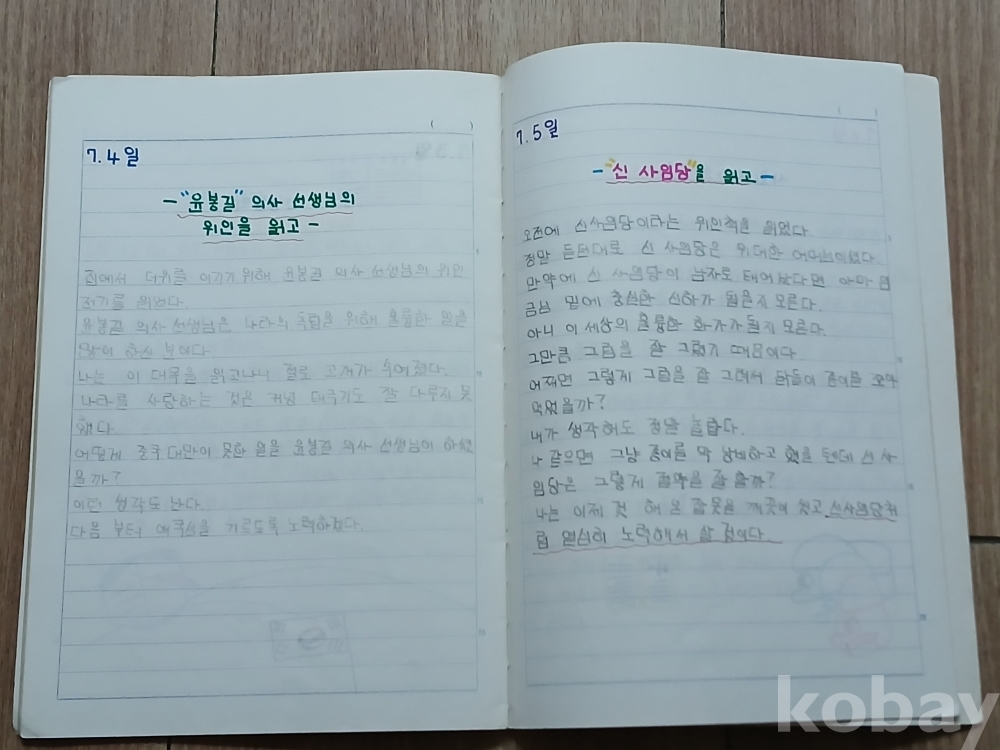 ( )
7. 4일
-"윤봉길" 의사 선생님의
위인을 읽고-
집에서 더위를 이기기 위해 윤봉길 의사 선생님의 위인
전기를 읽었다.
윤봉길 의사 선생님은 나라의 독립을 위해 훌륭한 일을
많이 하신 분이다.
나는 이 대목을 읽고나니 절로 고개가 숙여졌다.
나라를 사랑하는 것은 커녕 태극기도 잘 다루지 못
했다.
어떻게 중국 대만이 못한 일을 윤봉길 의사 선생님이 하셨
을까?
이런 생각도 난다.
다음 부터 애국심을 기르도록 노력하겠다.
( )
7. 5일
-"신 사임당"을 읽고-
오전에 신사임당이라는 위인책을 읽었다.
정말 듣던대로 신 사임당은 위대한 어머니였다.
만약에 신 사임당이 남자로 태어났다면 아마 임
금님 밑에 충실한 신하가 됬을지 모른다.
아니 이 세상의 훌륭한 화가가 됬을지 모른다.
그만큼 그림을 잘 그렸기 때문이다.
어쩌면 그렇게 그림을 잘 그려서 닭들이 종이를 쪼아
먹었을까?
내가 생각해도 정말 놀랍다.
나 같으면 그냥 종이를 막 낭비하고 했을 텐데 신 사
임당은 그렇게 절약을 잘 할까?
나는 이제 껏 해 온 잘못을 깨끗이 씻고 신사임당처
럼 열심히 노력해서 살 것이다.
kobay